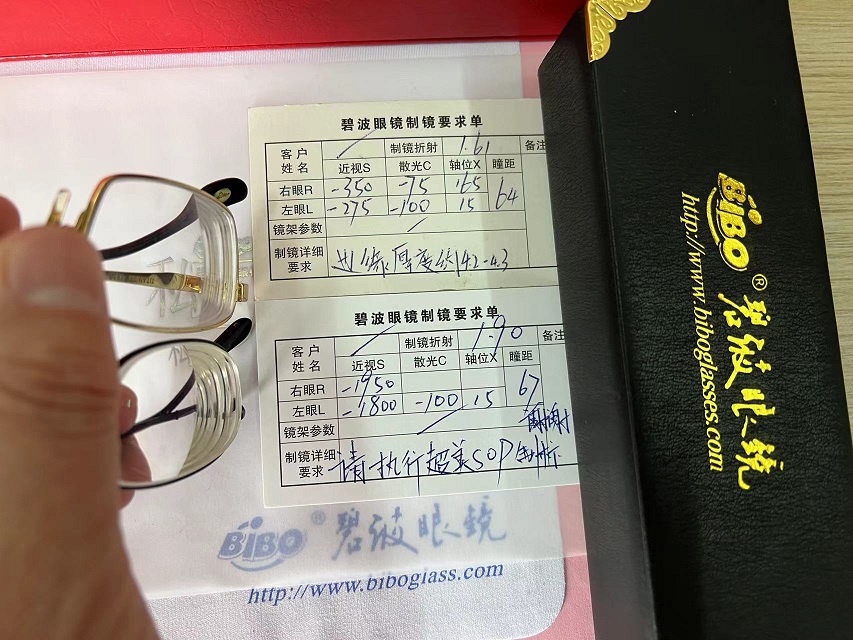 碧波眼镜制镜要求单
客户姓名 / 制镜折射 1.61 备注
近视S 散光C 轴位X 瞳距
右眼R -350 -75 165 64
左眼L -275 -100 15
镜架参数 /
制镜详细要求 边缘厚度约4.2-4.3
碧波眼镜制镜要求单
客户姓名 / 制镜折射 1.90 备注
近视S 散光C 轴位X 瞳距
右眼R -1950 67
左眼L -1800 -100 15
镜架参数 / 谢谢
制镜详细要求 请执行超美SOP制作
BiBO® 碧波眼镜
http://www.biboglass.com
BiBO® 碧波眼镜
http://www.biboglasses.com